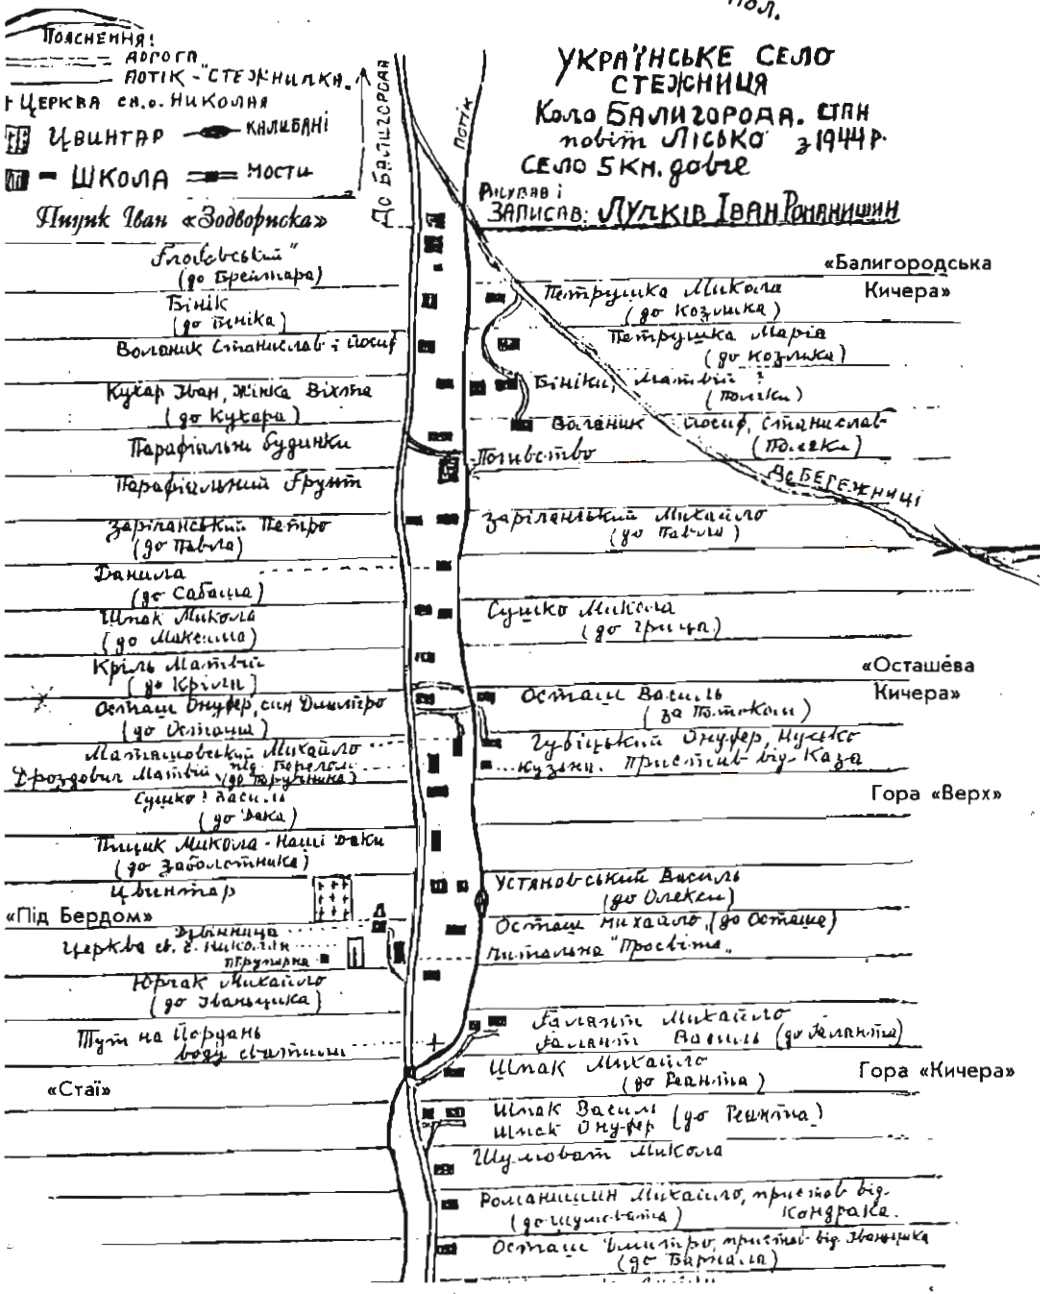 Пояснення:
дорога
потік - "Стежничка"
Церква св. о. Николая
Цвинтар
калибані
Школа
мости
До Балигорода
потік
Українське село
Стежниця
Коло Балигорода. стан
повіт Лісько з 1944 р.
село 5 км. довге
Рисував і
записав: Лучків Іван Романишин
Пцук Іван «Зодвориска»
(до Бреймара)
Бінік
(до Бініка)
Воланик Станислав і Йосиф
Кухар Іван, жінка Віхта
(до Кухара)
Парафіальні будинки
Парафіяльний Ґрунт
Заріланський Петро
(до Павла)
Данила
(до Сабата)
Шпак Микола
(до Максима)
Кріль Матвій
(до Кріля)
Осташ Онуфер, син Дмитро
(до Осташа)
Маташовський Михайло
Дроздович Матвій під Берегом
(до Поручника)
Сушко Василь
(до Дака)
Пцик Микола - Наші Даки
(до Заболотника)
Цвинтар
«Під Бердом»
Дзвінниця
Церква св. о. Николая
трупарна
Юрчак Михайло
(до Іваньцика)
Тут на Йордань
воду святили
«Стаї»
«Балигородська
Кичера»
Петрушка Микола
(до Козлика)
Петрушка Марія
(до Козлика)
Бініки, Матвій ?
(Поляки)
Воланик Йосиф, Станислав
(Поляки)
Попівство
До Бережниці
Заріланський Михайло
(до Павла)
Сушко Микола
(до Гриця)
«Осташёва
Кичера»
Осташ Василь
(за Потоком)
Губіцький Онуфер, Нусько
кузня. Пристив від Каза
Гора «Верх»
Устяновський Василь
(до Олекси)
Осташ Михайло, (до Осташа)
Читальна "Просвіта"
Ґалянт Михайло
Ґалянт Василь (до Ґалянта)
Шпак Михайло
(до Реанта)
Гора «Кичера»
Шпак Василь (до Реанта)
Шпак Онуфер
Шуловат Микола
Романишин Михайло, пристав від
(до Шуловата) Кондрака.
Осташ Дмитро, пристав від Іваньцика
(до Вархала)